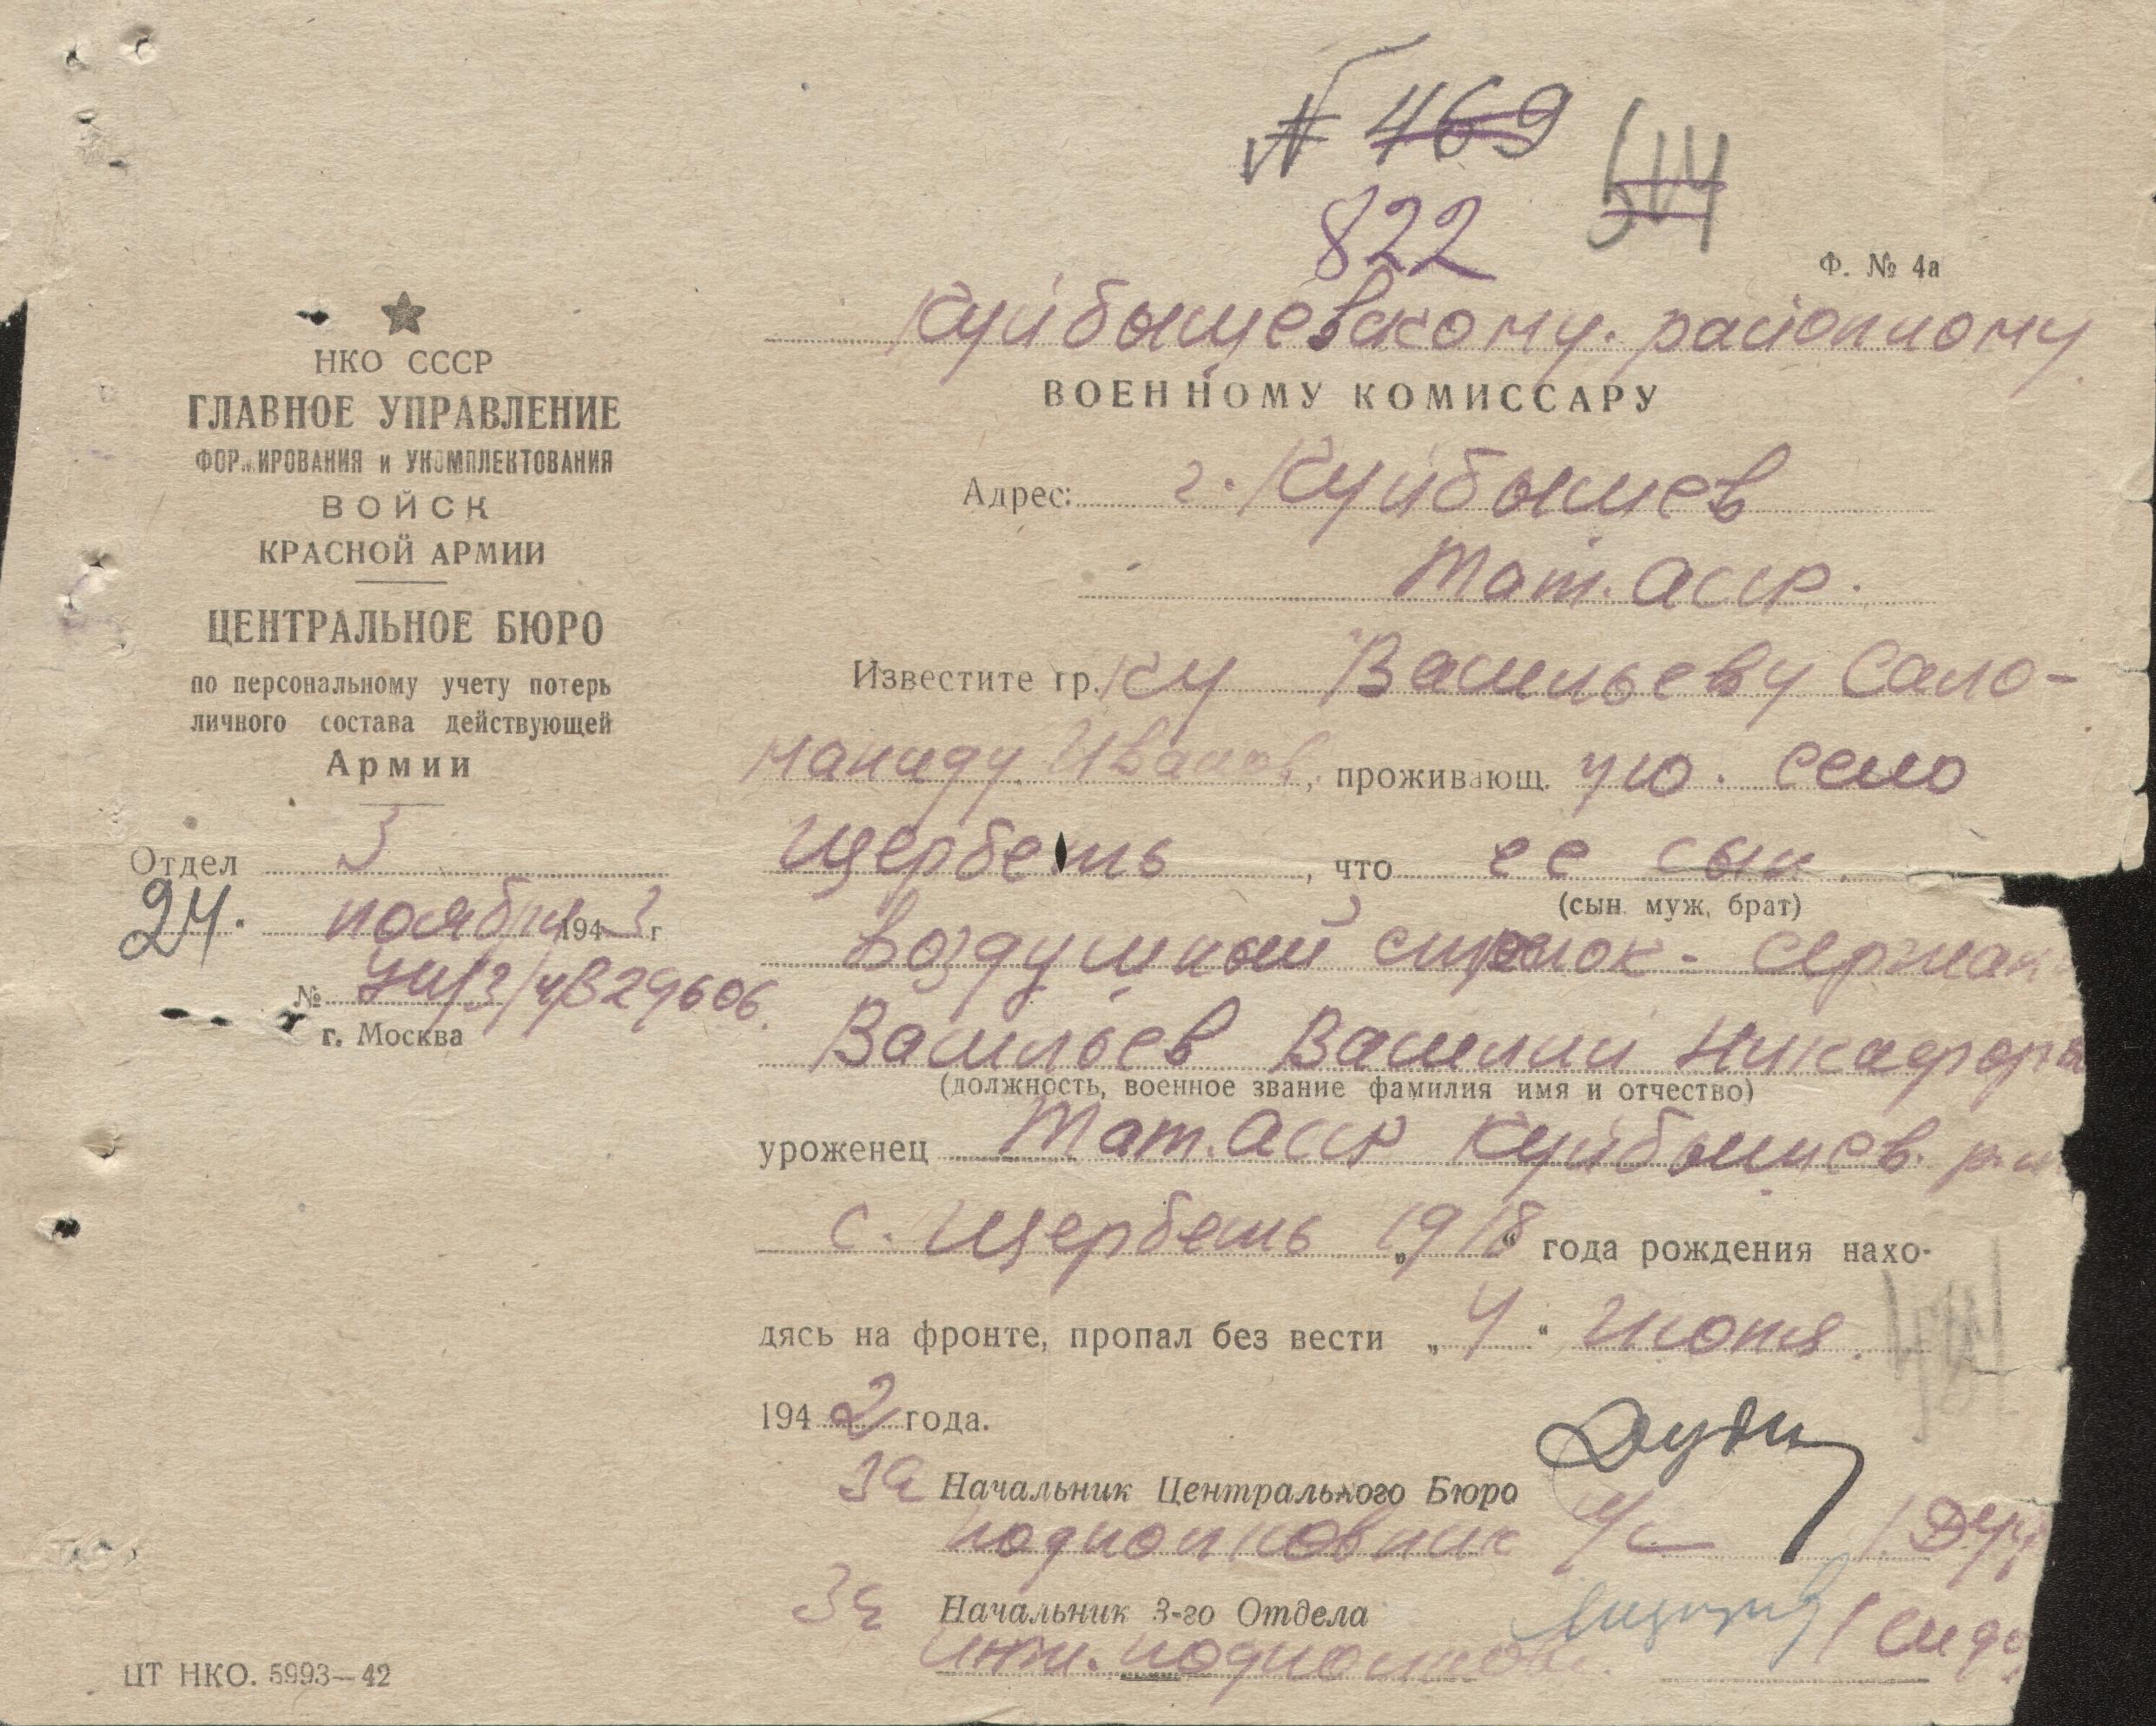 № 469
514
822
Ф. № 4а
НКО СССР
ГЛАВНОЕ УПРАВЛЕНИЕ
ФОРМИРОВАНИЯ и УКОМПЛЕКТОВАНИЯ
ВОЙСК
КРАСНОЙ АРМИИ
ЦЕНТРАЛЬНОЕ БЮРО
по персональному учету потерь
личного состава действующей
Армии
Отдел 3
24. ноября 1943 г
№ 29606.
г. Москва
Куйбышевскому районному
ВОЕННОМУ КОМИССАРУ
Адрес: г. Куйбышев
Тат. АССР.
Известите гр. ку Васильеву Сало-
маниду Иванов., проживающ. ую. село
Щербеть, что ее сын
(сын муж, брат)
Воздушный стрелок - сержан
Васильев Василий Никафоров
(должность, военное звание фамилия имя и отчество)
уроженец Тат. АССР Куйбышев. р-н
с. Щербеть „1918“ года рождения нахо-
дясь на фронте, пропал без вести „4“ июня
1942 года.
За Начальник Центрального Бюро
подполковник
За Начальник 3-го Отдела
инт. подполков.
ЦТ НКО. 5993—42